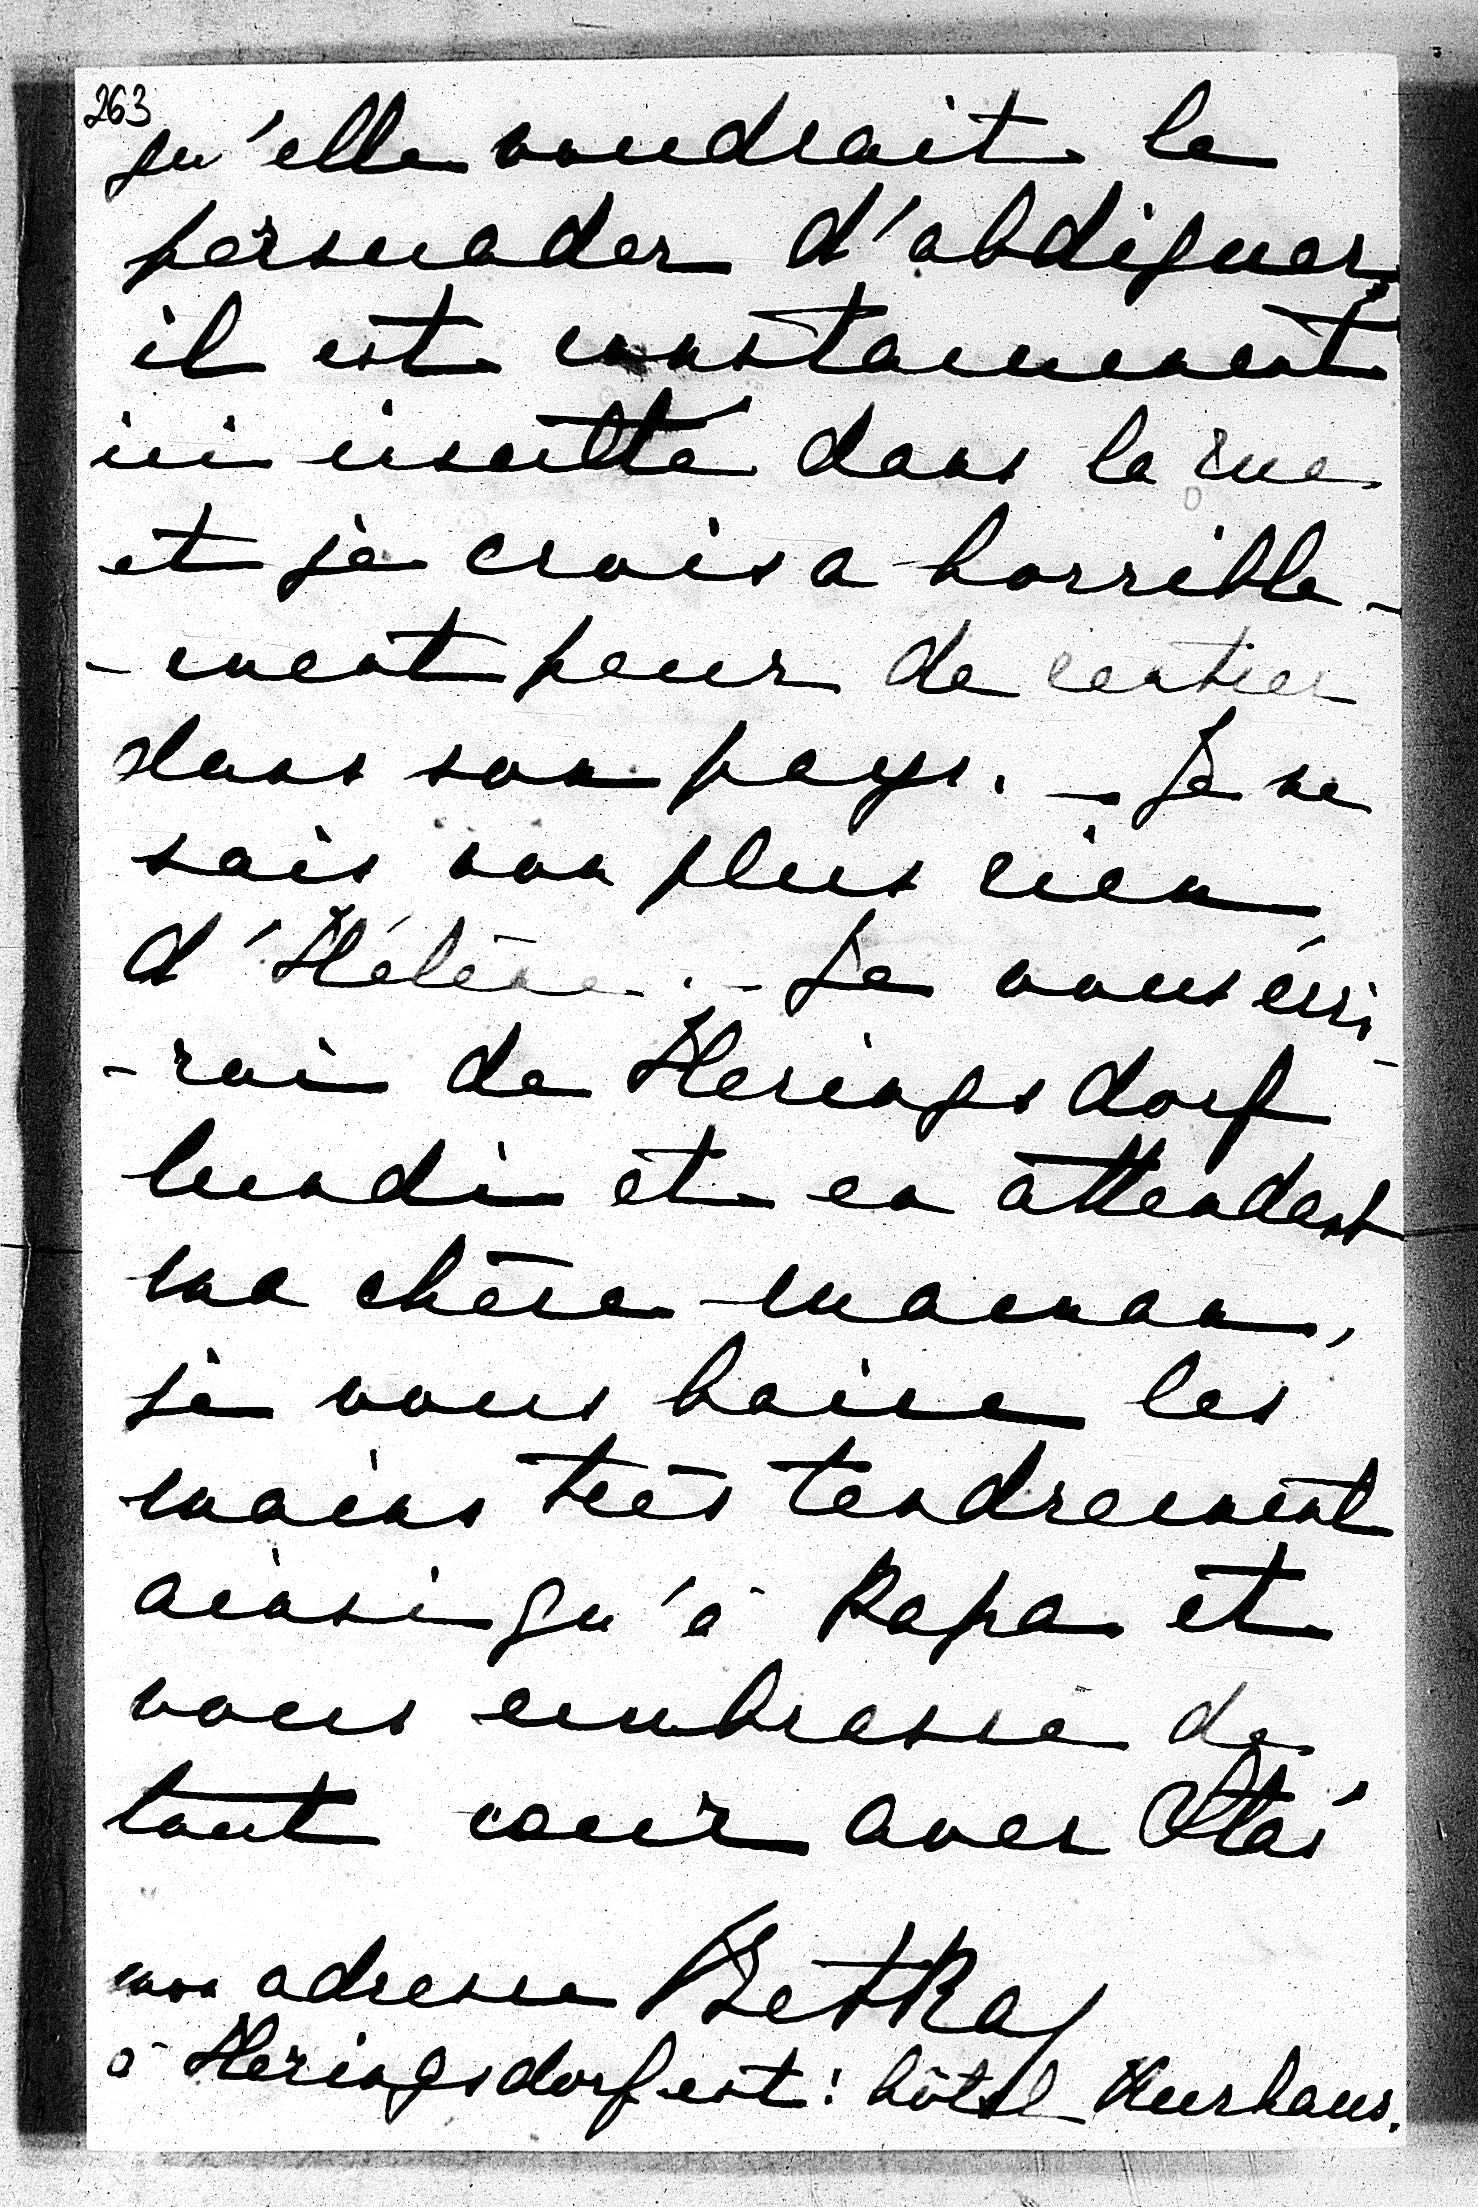 263
qu'elle voudrait le
persuader d'abdiquer,
il est constamment
ici insulté dans la rue
et je crois a horrible-
-ment peur de rentrer
dans son pays. – Je ne
sais non plus rien
d'Hélène. – Je vous écri-
-rai de Heringsdorf
lundi et en attendant
ma chère maman,
je vous baise les
mains très tendrement
ainsi qu'à Papa et
vous embrasse de
tout cœur avec
Betka
mon adresse
à Heringsdorf est: hôtel Kurhaus.